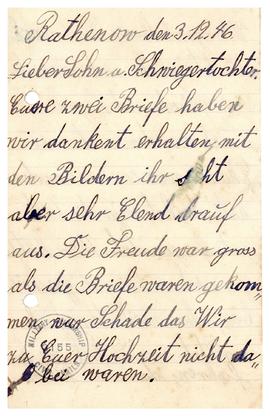 Rathenow den 3.12.46
Lieber Sohn u. Schwiegertochter.
Eure zwei Briefe haben
wir dankent erhalten, mit
den Bildern ihr seht
aber sehr Elend drauf
aus. Die Freude war gross
als die Briefe waren gekom-
men, nur Schade das Wir
zu Euer Hochzeit nicht da
bei waren.
55